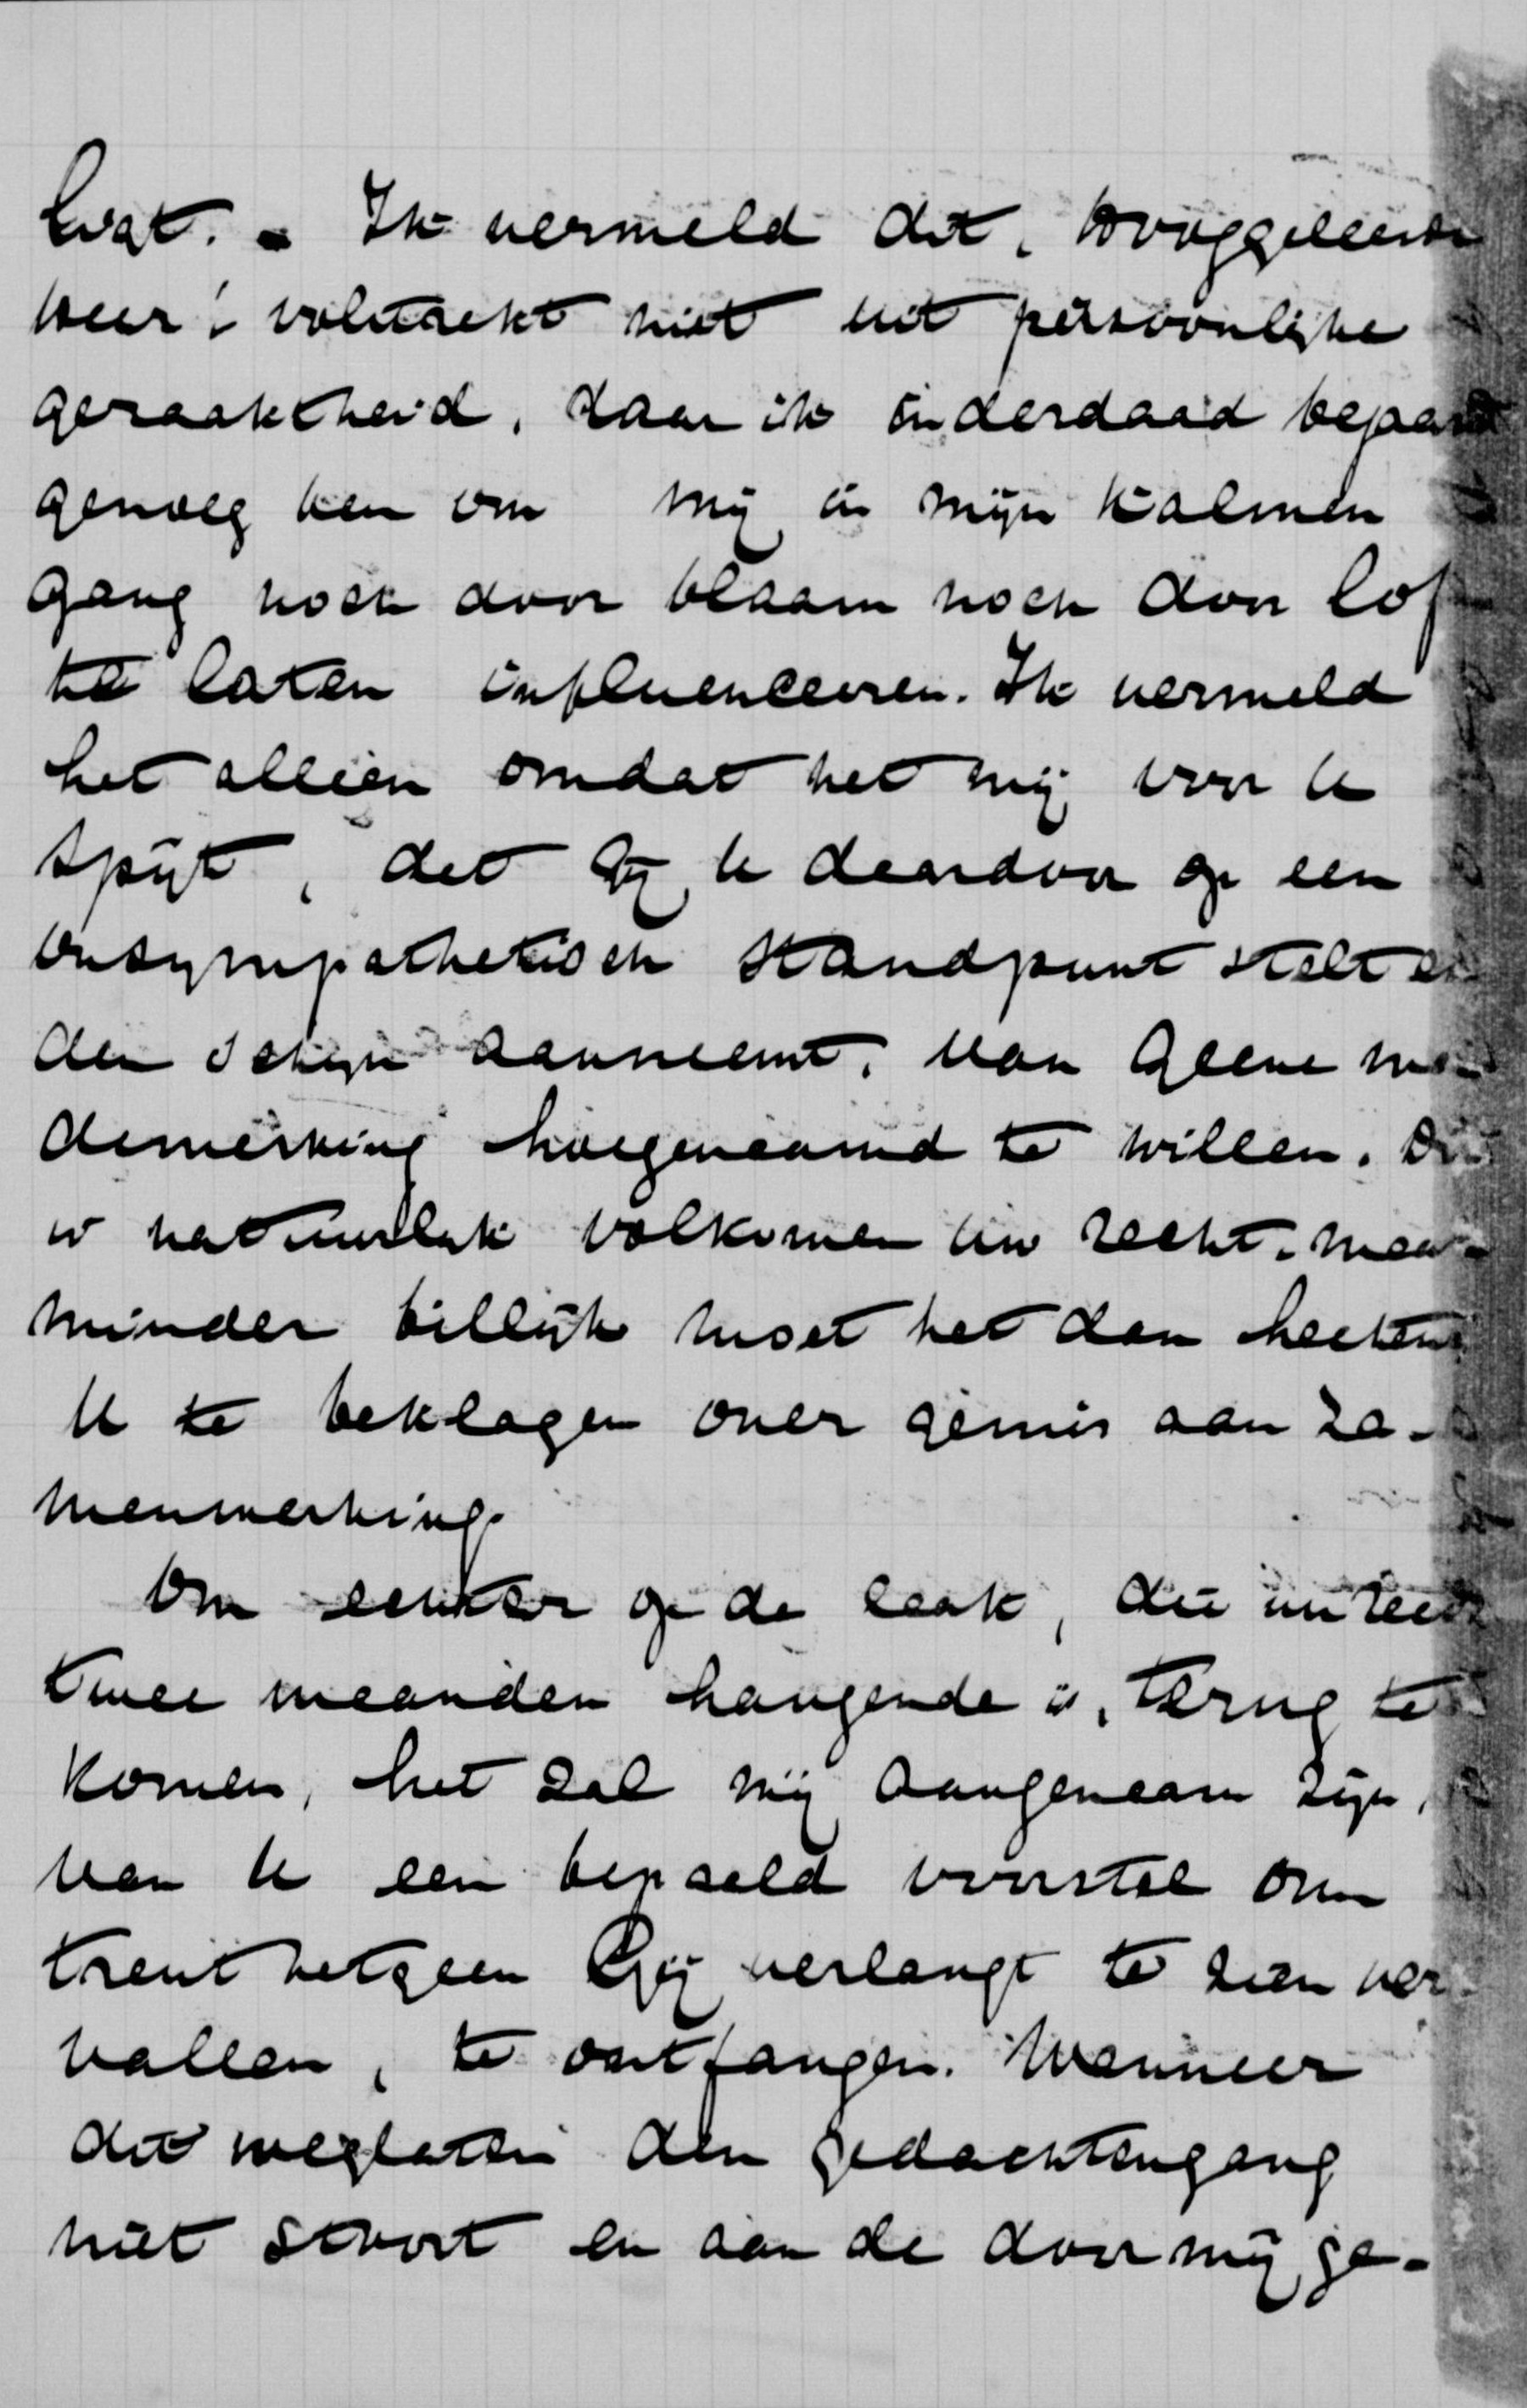 bvat. - Ik vermeld dit, Hooggeleerde
Heer! volstrekt niet uit persoonlijke
geraaktheid, daar ik inderdaad bejaard
genoeg ben om mij in mijn kalmen
gang noch door blaam noch door lof
te laten influenceeren. Ik vermeld
het alleen omdat het mij voor U
spijt, dat Gij U daardoor op een
onsympathetisch standpunt stelt en
den schijn aanneemt, van geene me-
dewerking hoegenaamd te willen. Dit
is natuurlijk volkomen Uw recht, maar
minder billijk moet het dan heeten
U te beklagen over gemis aan za-
menwerking.
Om echter op de zaak, die nu reeds
twee maanden hangende is, terug te
komen, het zal mij aangenaam zijn,
van U een bepaald voorstel om
trent hetgeen Gij verlangt te zien ver-
vallen, te ontfangen. Wanneer
dit weglaten den gedachtengang
niet stoort en aan de door mij ge-